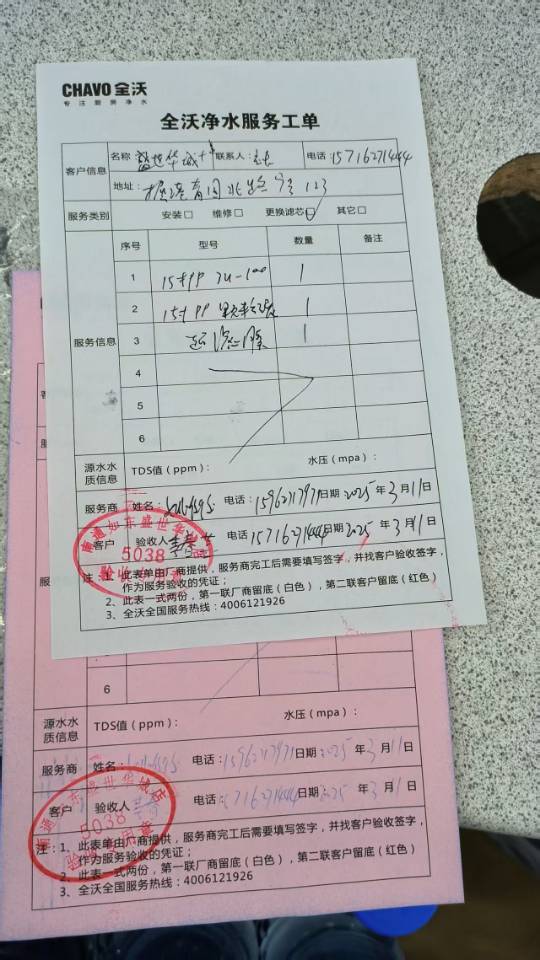 CHAVO 全沃
专注厨房净水
全沃净水服务工单
客户信息
名称 世华城 联系人: 电话:15716271444
地址: 123
服务类别 安装□ 维修□ 更换滤芯☑ 其它□
服务信息
序号 型号 数量 备注
1 15寸PP 1
2 15寸PP 1
3 1
4
5
6
源水水质信息 TDS值(ppm): 水压(mpa):
服务商 姓名: 电话:15962717971 日期 2025年3月11日
客户 验收人 电话 15716271444 日期 2025年3月11日
南通如东盛世华城店
5038
注:1、此表单由厂商提供,服务商完工后需要填写签字,并找客户验收签字,
作为服务验收的凭证;
2、此表一式两份,第一联厂商留底(白色),第二联客户留底(红色)
3、全沃全国服务热线:4006121926
6
源水水质信息 TDS值(ppm): 水压(mpa):
服务商 姓名: 电话:15962717971 日期 2025年3月11日
客户 验收人 电话:15716271444 日期 2025年3月11日
5038
注:1、此表单由厂商提供,服务商完工后需要填写签字,并找客户验收签字,
作为服务验收的凭证;
2、此表一式两份,第一联厂商留底(白色),第二联客户留底(红色)
3、全沃全国服务热线:4006121926